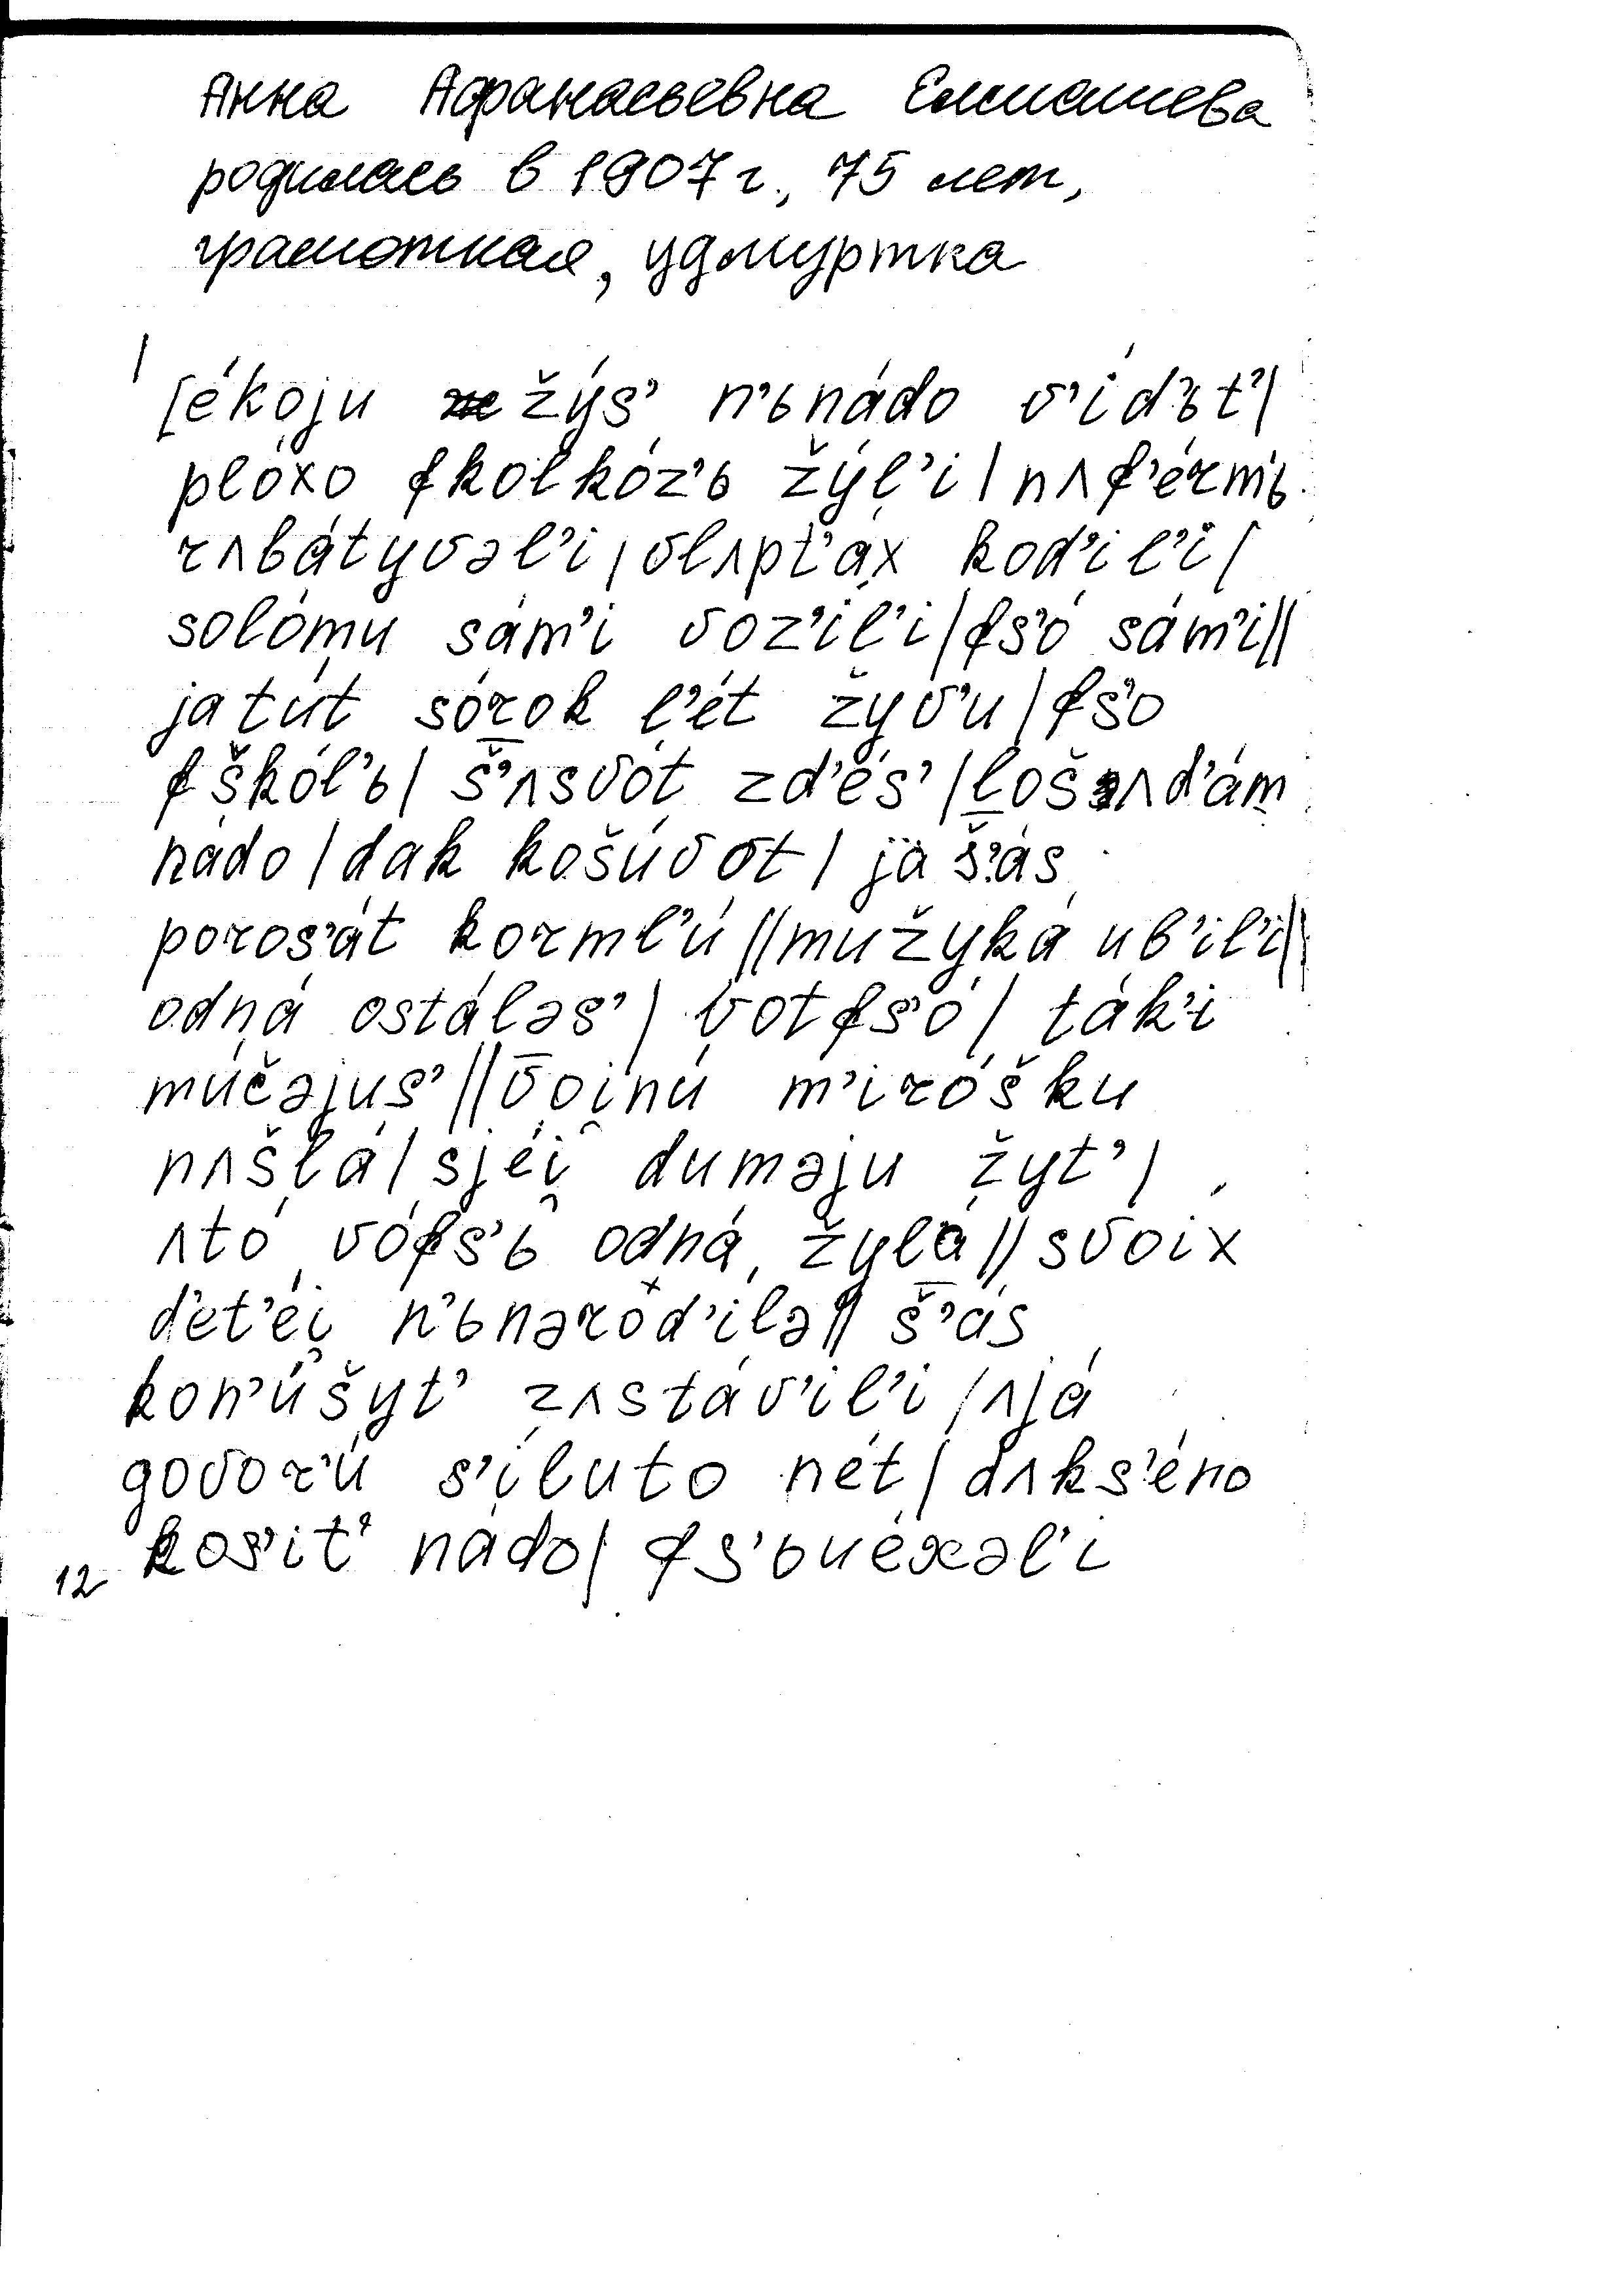 Анна Афанасьевна Елисеева
родилась в 1907 г., 75 лет,
грамотная, удмуртка
[ékoju žýs’ n’ьnádo v’ídъt’|
plóxo fkolkóz’ь žýl’i|nʌf’érm’ь
rʌbátyvəl’i|vlʌpt’áx xod’íl’i|
solómu sám’i voz’íl’i|fs’ó sám’i||
ja tút sórok l’ét žyv’ú|fs’o
fškól’ь| š’ʌsvót zd’és’|lošʌd’ám
nádo|dak košú vot| ja š’ás
poros’át korml’ú||mužyká ub’íl’i||
odná ostáləs’| votfs’ó| ták’i
múčəjus’||voi̯nú m’iróšku
nʌšlá|sjéi̯ duməju žyt’|
ʌtó vófs’ь odná žylá||svoix
d’et’éi̯ n’ьnərod’ílə|| š’ás
kon’úšyt’ zʌstáv’il’i|ʌjá
govor’ú s’íluto nét|dʌks’éno
kos’ít’ nádo| fs’ьuéxəl’i
12